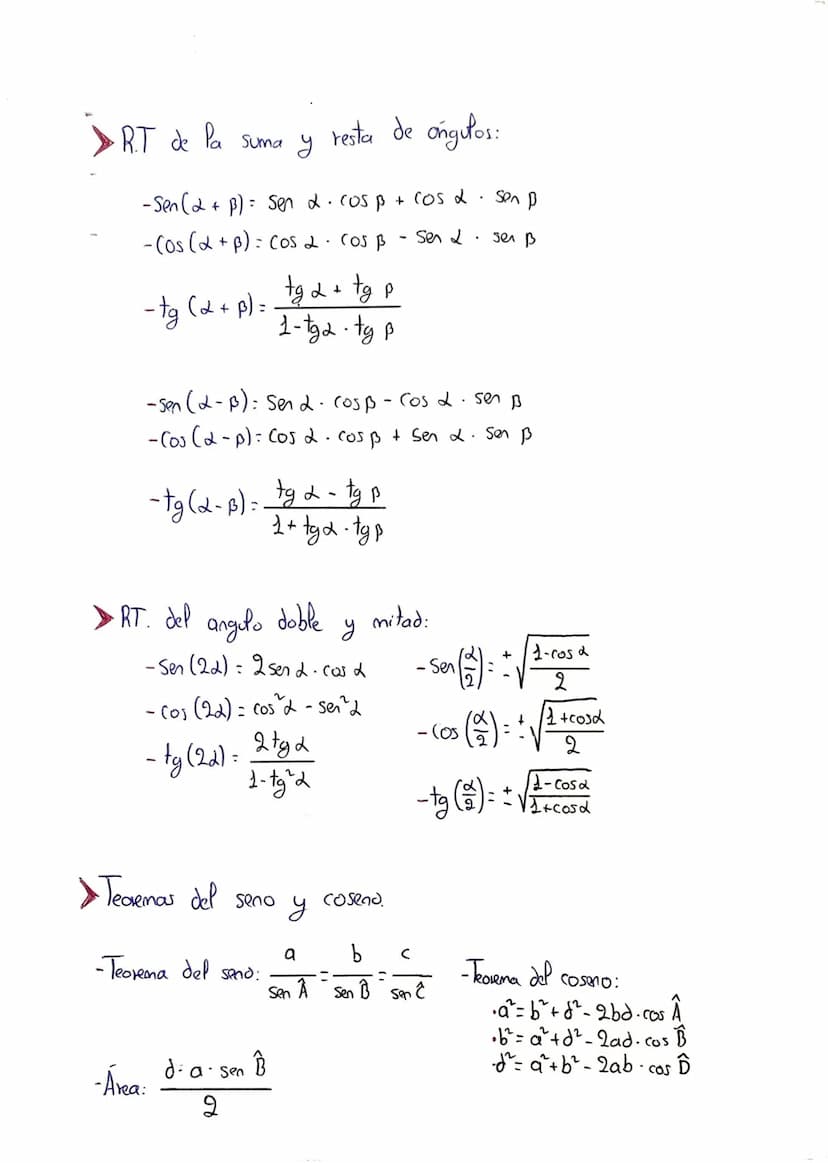 R.T de la suma y resta de ángulos:
-Sen(α + β) = Sen α · cos β + cos α · sen β
-Cos(α + β) = Cos α · cos β - Sen α · sen β
-tg (α + β) = \frac{tg α + tg β}{1 - tg α · tg β}
-sen(α - β) = Sen α · cos β - Cos α · sen β
-Cos(α - β) = Cos α · cos β + Sen α · Sen β
-tg(α - β) = \frac{tg α - tg β}{1 + tg α · tg β}
RT. del angulo doble y mitad:
-Sen(2α) = 2 sen α · cos α
-cos (2α) = cos²α - sen²α
-tg(2α) = \frac{2 tg α}{1 - tg²α}
-Sen(\frac{α}{2}) = ± \sqrt{\frac{1 - cos α}{2}}
-Cos(\frac{α}{2}) = ± \sqrt{\frac{1 + cos α}{2}}
-tg(\frac{α}{2}) = ± \sqrt{\frac{1 - cos α}{1 + cos α}}
Teoremas del seno y coseno.
-Teorema del seno: \frac{a}{sen Â} = \frac{b}{sen B̂} = \frac{c}{sen Ĉ}
-Área: \frac{d · a · sen B̂}{2}
-Teorema del coseno:
·a² = b² + d² - 2bd · cos Â
·b² = a² + d² - 2ad · cos B̂
·d² = a² + b² - 2ab · cos D̂